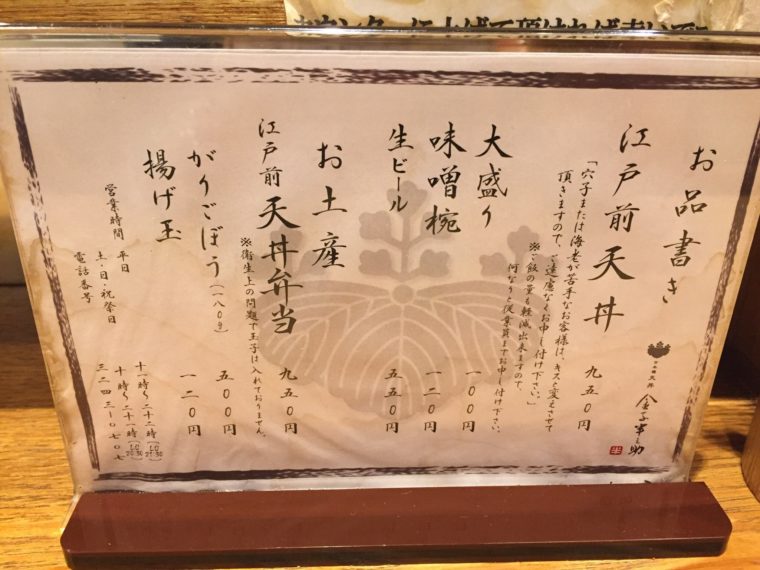 お品書き
江戸前 天丼 九五〇円
「穴子または海老が苦手なお客様は、キスと変えさせて
頂きますので、ご遠慮なくお申し付け下さい。」
※ご飯の量も軽減出来ますので、
何なりと従業員までお申し付け下さい。
大盛り 一〇〇円
味噌椀 一二〇円
生ビール 五五〇円
お土産
江戸前 天丼弁当 九五〇円
※衛生上の問題で玉子は入れておりません。
がりごぼう(一八〇g) 五〇〇円
揚げ玉 一二〇円
営業時間 平日 十一時〜二十二時(LO 21:30)
土・日・祝祭日 十時〜二十一時(LO 20:30)
電話番号 三二四三-〇七〇七
金子半之助